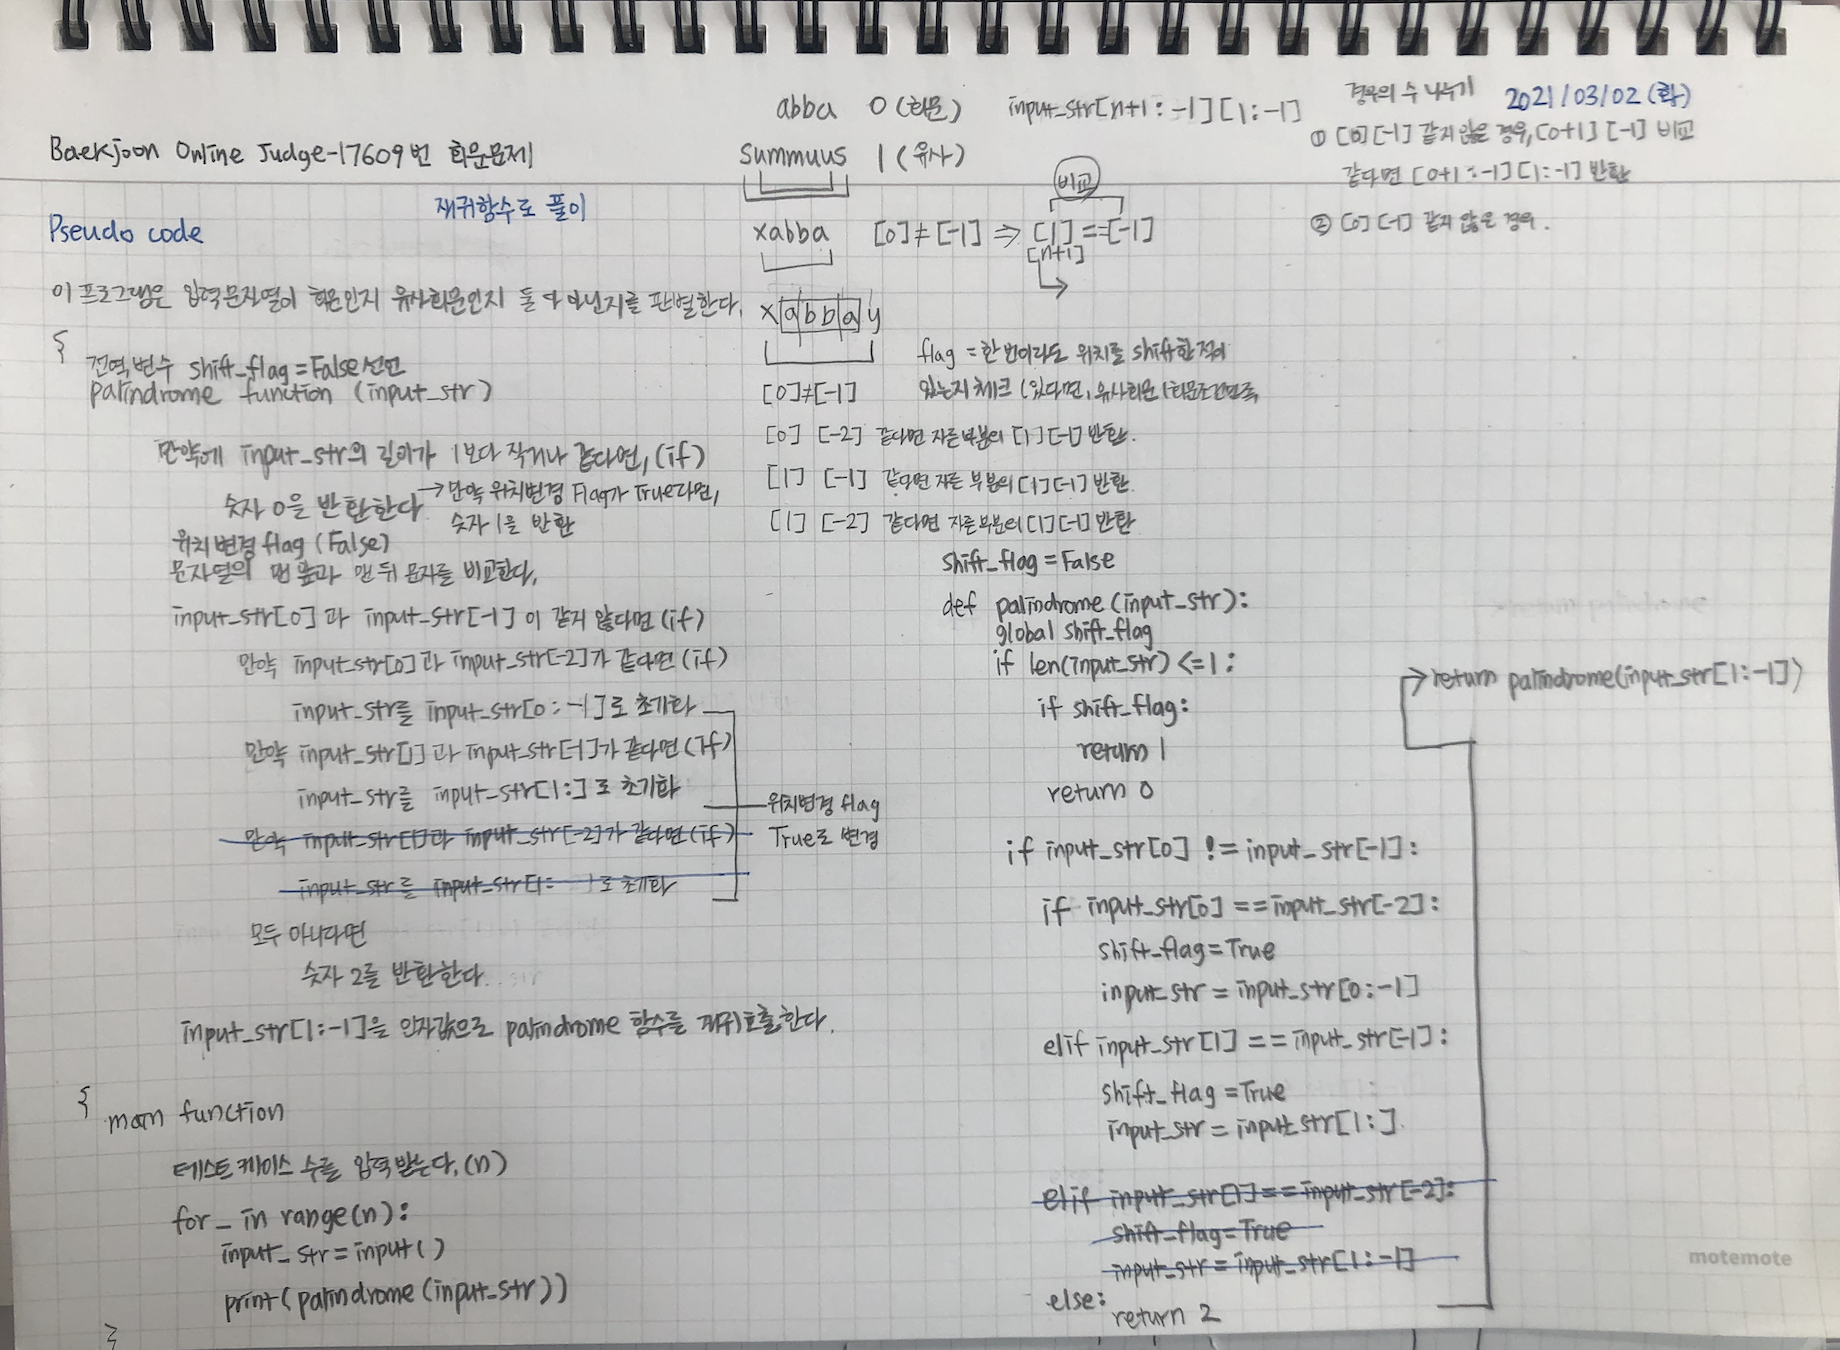 Baekjoon Online Judge-17609번 회문문제
재귀함수로 풀이
Pseudo code
이 프로그램은 입력문자열이 회문인지 유사회문인지 둘 다 아닌지를 판별한다.
{
전역변수 shift_flag = False 선언
palindrome function (input_str)
만약에 input_str의 길이가 1보다 작거나 같다면, (if)
숫자 0을 반환한다 → 만약 위치변경 Flag가 True라면,
숫자 1을 반환
위치변경 flag (False)
문자열의 맨 앞과 맨 뒤 문자를 비교한다.
input_str[0]과 input_str[-1]이 같지 않다면 (if)
만약 input_str[0]과 input_str[-2]가 같다면 (if)
input_str를 input_str[0:-1]로 초기화
만약 input_str[1]과 input_str[-1]가 같다면 (if)
input_str를 input_str[1:]로 초기화
위치변경 flag
True로 변경
만약 input_str[1]과 input_str[-2]가 같다면 (if)
input_str를 input_str[1: ]로 초기화
모두 아니라면
숫자 2를 반환한다.
input_str[1:-1]을 인자값으로 palindrome 함수를 재귀호출한다.
{
main function
테스트 케이스 수를 입력받는다. (n)
for _ in range(n):
input_str = input()
print(palindrome(input_str))
}
abba 0 (회문)
summuus 1 (유사)
xabba [0]≠[-1] ⇒ [1]==[-1]
비교
[n+1]
xabbay
[0]≠[-1]
flag = 한 번이라도 위치를 shift한 적이
있는지 체크 (있다면, 유사회문 (회문조건만족,
[0] [-2] 같다면 자른부분의 [1][-1] 반환.
[1] [-1] 같다면 자른 부분의 [1][-1] 반환
[1] [-2] 같다면 자른부분의 [1][-1] 반환
input_str[n+1:-1][1:-1]
경우의 수 나누기
2021/03/02 (화)
① [0][-1] 같지 않은 경우, [0+1] [-1] 비교
같다면 [0+1:-1][1:-1] 반환
② [0][-1] 같지 않은 경우.
shift_flag = False
def palindrome(input_str):
global shift_flag
if len(input_str) <= 1:
if shift_flag:
return 1
return 0
if input_str[0] != input_str[-1]:
if input_str[0] == input_str[-2]:
shift_flag = True
input_str = input_str[0:-1]
elif input_str[1] == input_str[-1]:
shift_flag = True
input_str = input_str[1:]
elif input_str[1] == input_str[-2]:
shift_flag = True
input_str = input_str[1:-1]
else:
return 2
return palindrome(input_str[1:-1])
motemote